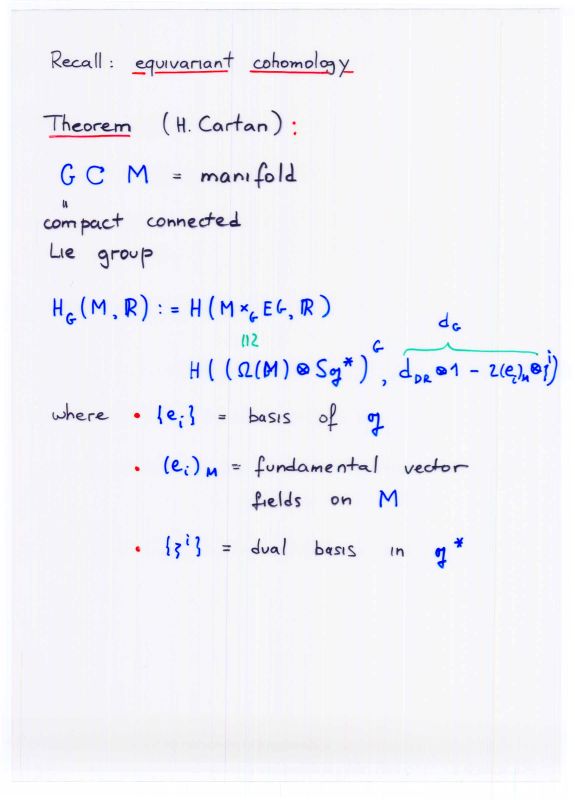 Recall: equivariant cohomology
Theorem (H. Cartan):
G ⊂ M = manifold
"
compact connected
Lie group
H_G(M, ℝ) := H(M×_G EG, ℝ)
≅ d_G
H((Ω(M) ⊗ S𝔤*)^G, d_DR ⊗ 1 - ι(e_i)_M ⊗ ξ^i)
where • {e_i} = basis of 𝔤
• (e_i)_M = fundamental vector
fields on M
• {ξ^i} = dual basis in 𝔤*